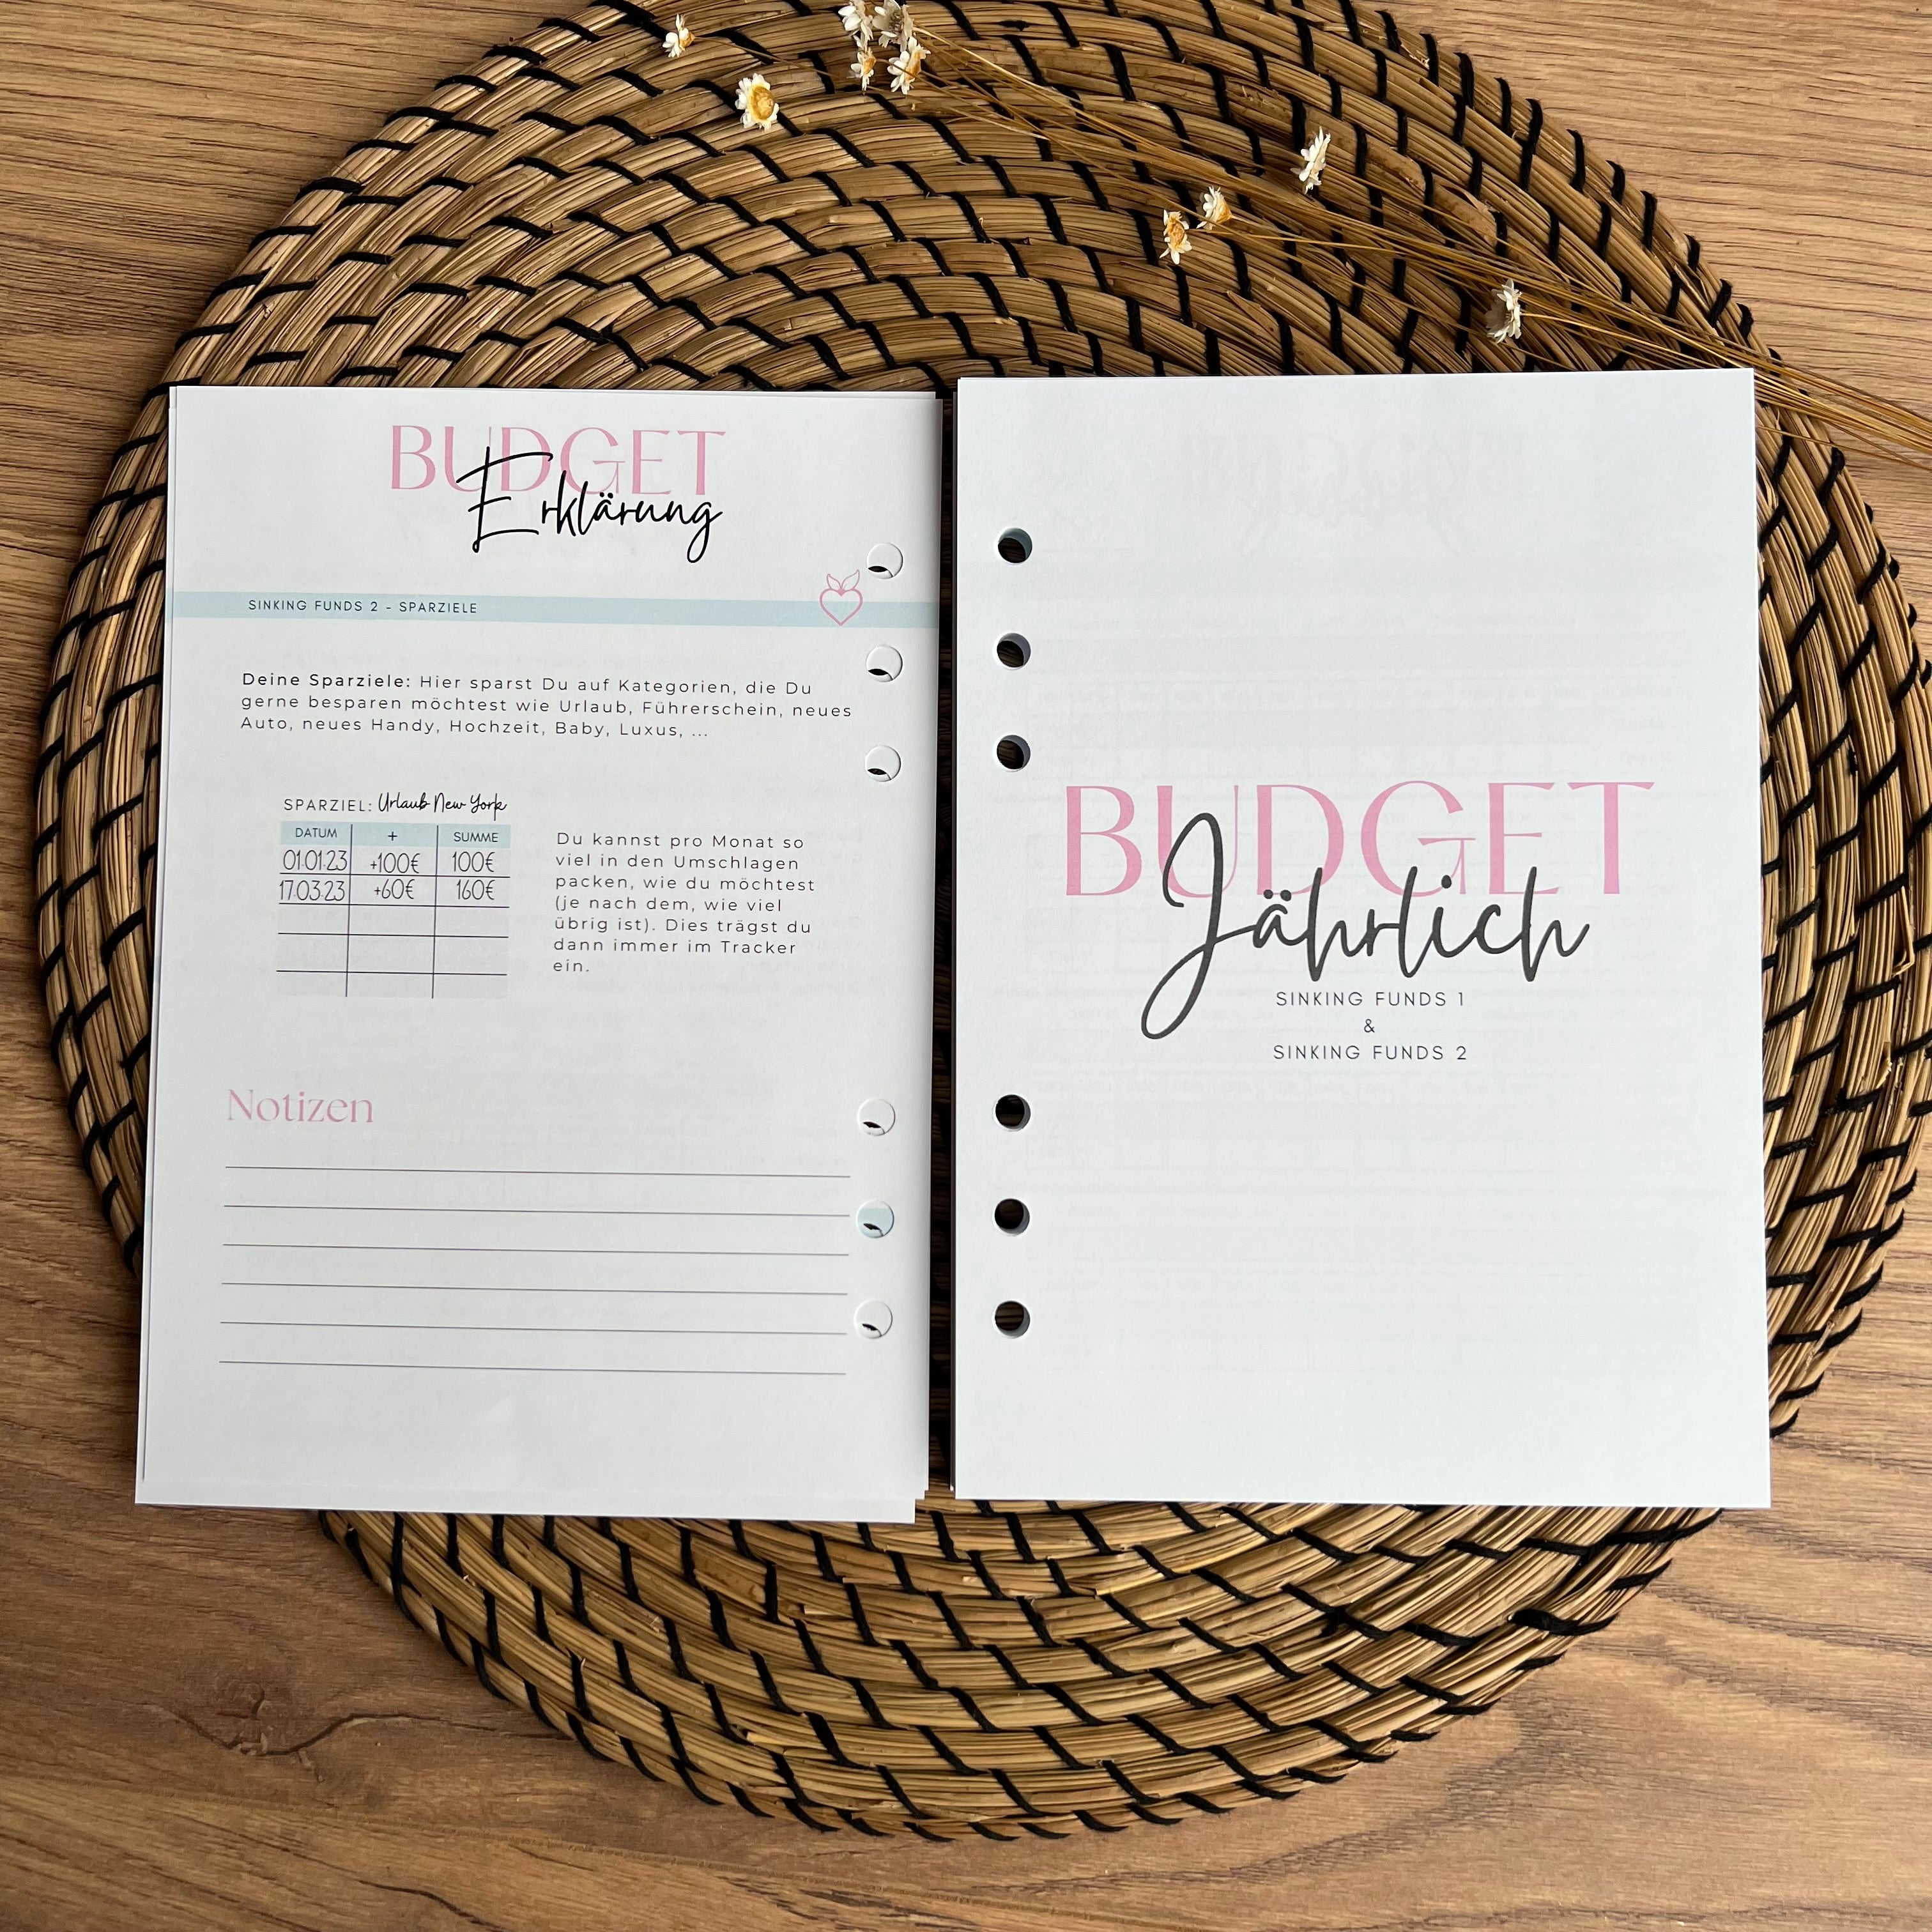 BUDGET
Erklärung
SINKING FUNDS 2 - SPARZIELE
Deine Sparziele: Hier sparst Du auf Kategorien, die Du
gerne besparen möchtest wie Urlaub, Führerschein, neues
Auto, neues Handy, Hochzeit, Baby, Luxus, ...
SPARZIEL: Urlaub New York
DATUM + SUMME
01.01.23 +100€ 100€
17.03.23 +60€ 160€
Du kannst pro Monat so
viel in den Umschlagen
packen, wie du möchtest
(je nach dem, wie viel
übrig ist). Dies trägst du
dann immer im Tracker
ein.
Notizen
BUDGET
Jährlich
SINKING FUNDS 1
&
SINKING FUNDS 2